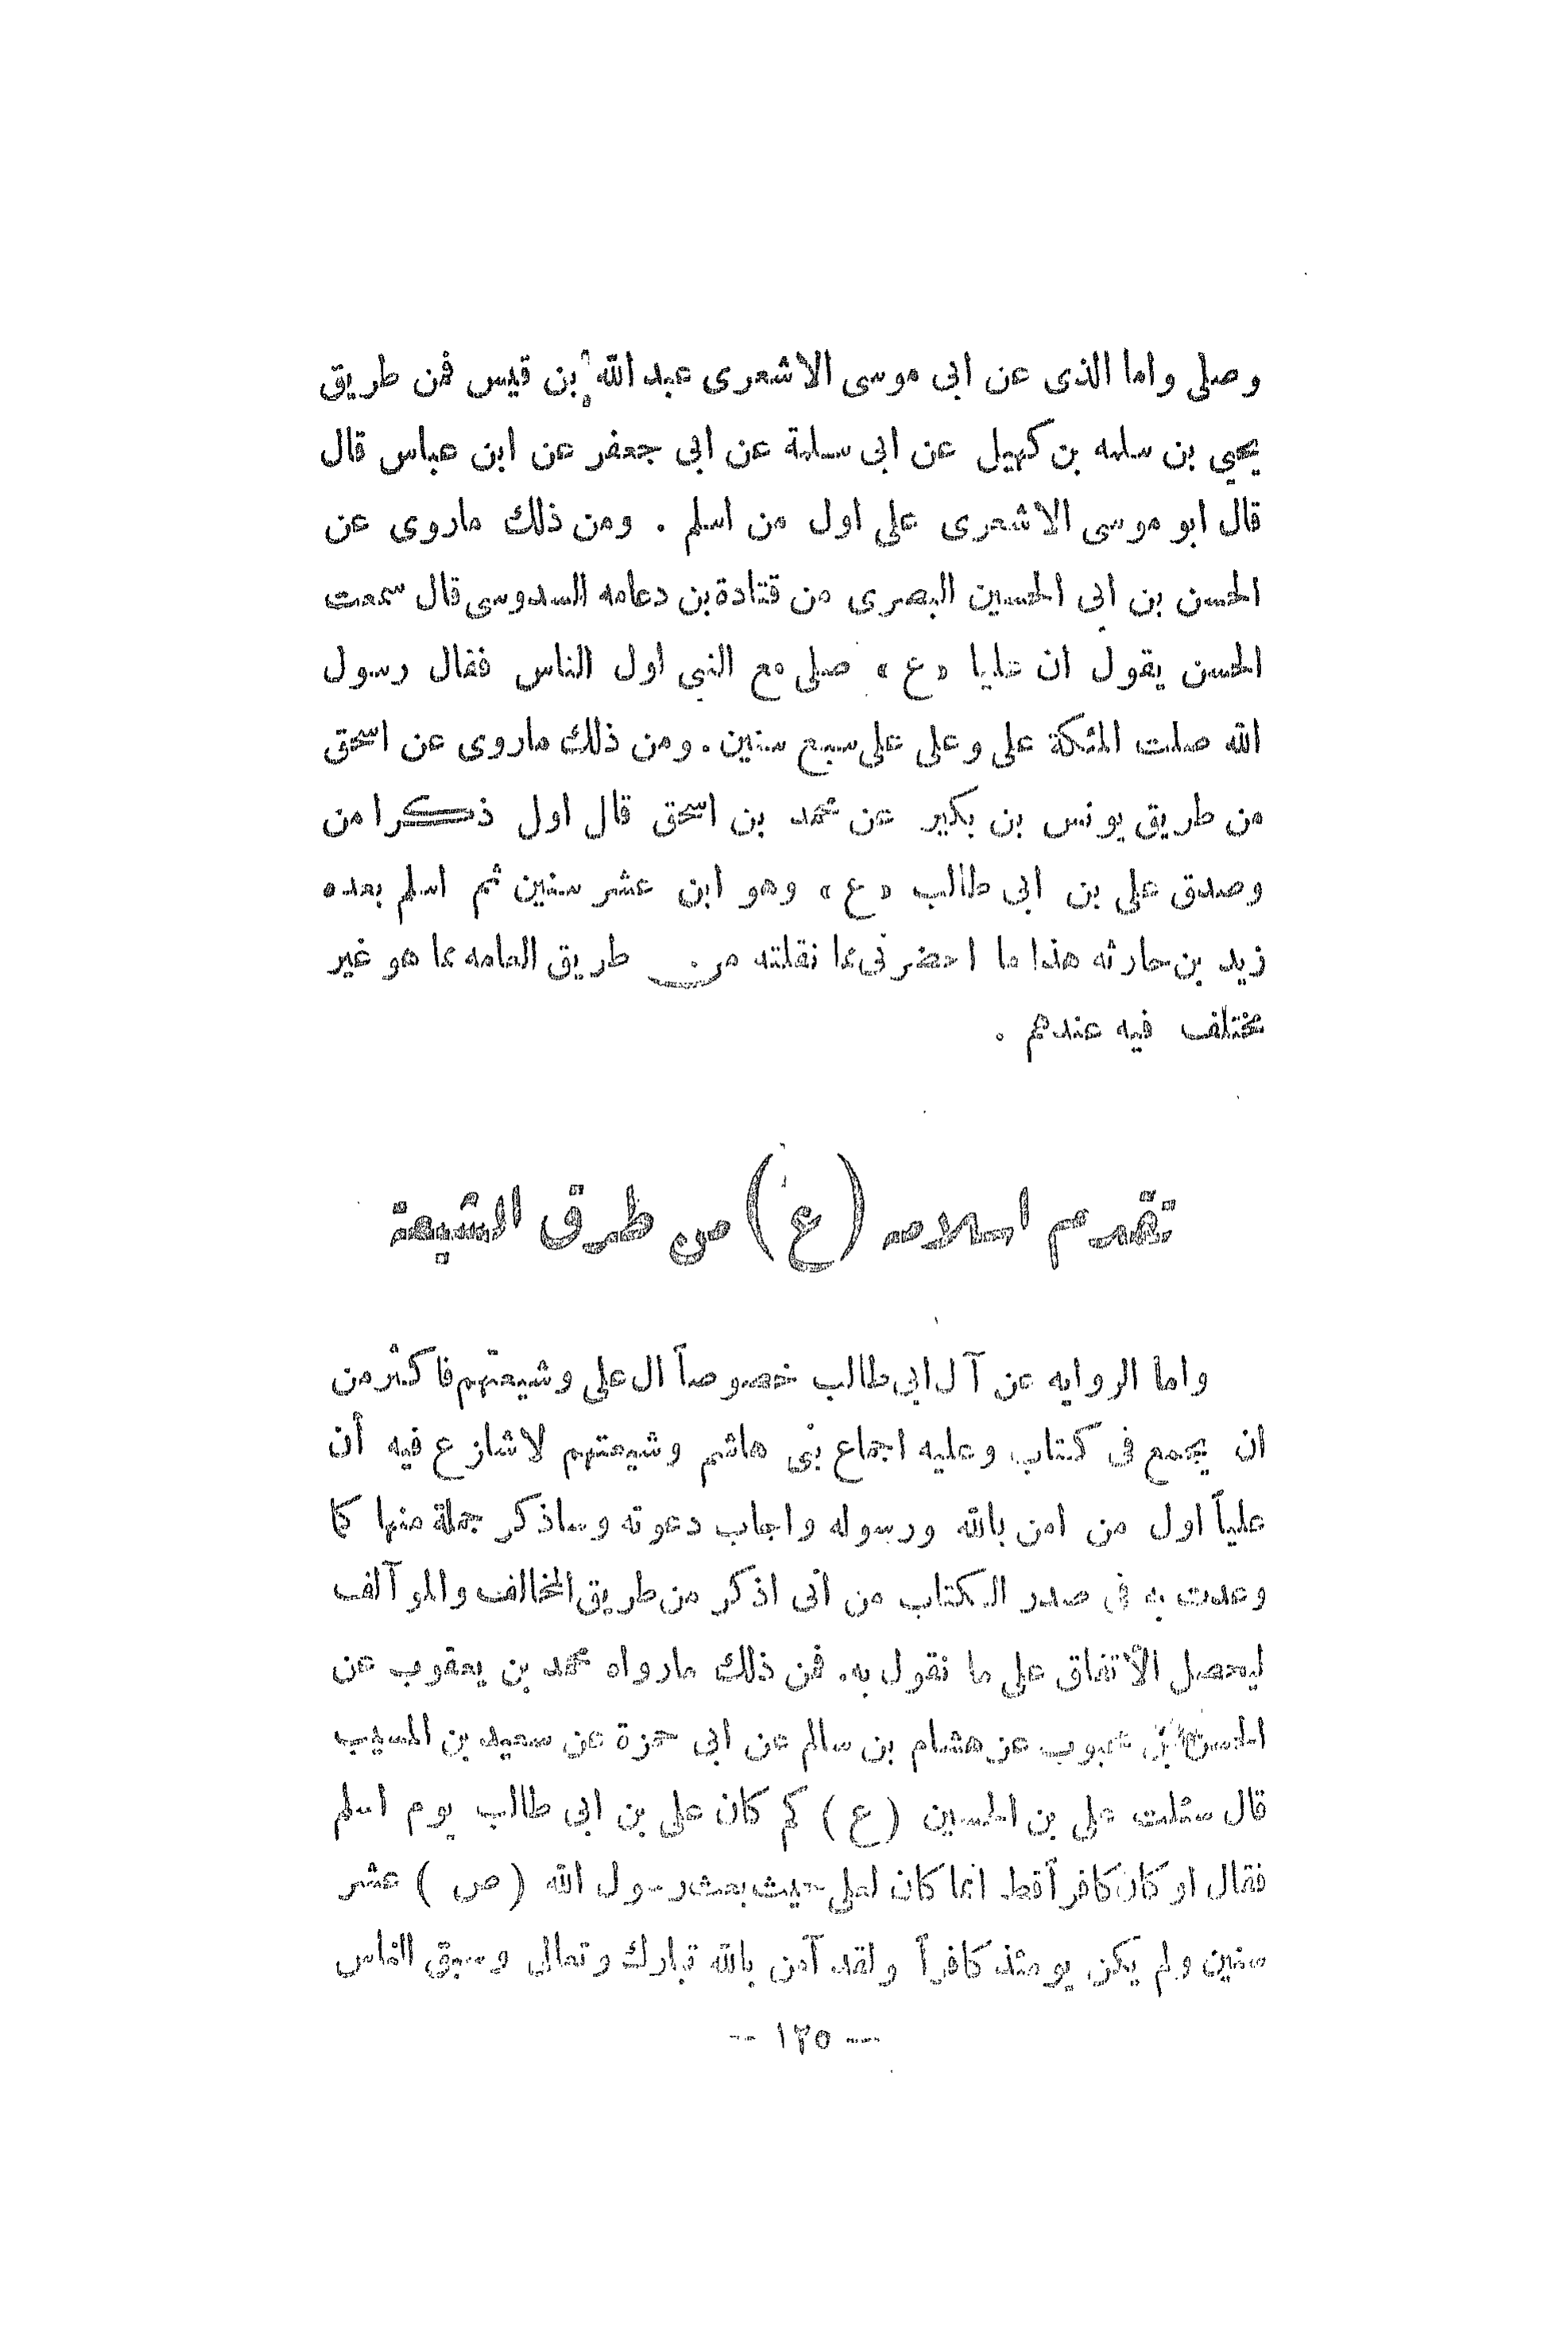 وصلى واما الذى عن ابى موسى الاشعرى عبد الله بن قيس فمن طريق
يحيي بن سلمه بن كهيل عن ابى سلمة عن ابى جعفر عن ابن عباس قال
قال ابو موسى الاشعرى على اول من اسلم . ومن ذلك ماروى عن
الحسن بن ابى الحسين البصرى من قتادة بن دعامه السدوسى قال سمعت
الحسن يقول ان عليا «ع» صلى مع النبى اول الناس فقال رسول
الله صلت الملئكة على وعلى على سبع سنين . ومن ذلك ماروى عن اسحق
من طريق يونس بن بكير عن محمد بن اسحق قال اول ذكرا من
وصدق على بن ابى طالب «ع» وهو ابن عشر سنين ثم اسلم بعده
زيد بن حارثه هذا ما احضرنى مما نقلته من طريق العامه مما هو غير
مختلف فيه عندهم .
تقدم اسلامه (ع) من طرق الشيعة
واما الروايه عن آل ابى طالب خصوصاً ال على وشيعتهم فاكثر من
ان يجمع فى كتاب وعليه اجماع بنى هاشم وشيعتهم لاشازع فيه أن
علياً اول من امن بالله ورسوله واجاب دعوته وساذكر جملة منها كما
وعدت به فى صدر الكتاب من انى اذكر من طريق المخالف والموآلف
ليحصل الأتفاق على ما نقول به . فمن ذلك مارواه محمد بن يعقوب عن
الحسن بن محبوب عن هشام بن سالم عن ابى حمزة عن سعيد بن المسيب
قال سئلت على بن الحسين (ع) كم كان على بن ابى طالب يوم اسلم
فقال او كان كافراً قط انما كان لعلى حيث بعث رسول الله (ص) عشر
سنين ولم يكن يومئذ كافراً ولقد آمن بالله تبارك وتعالى وسبق الناس
— ١٢٥ —